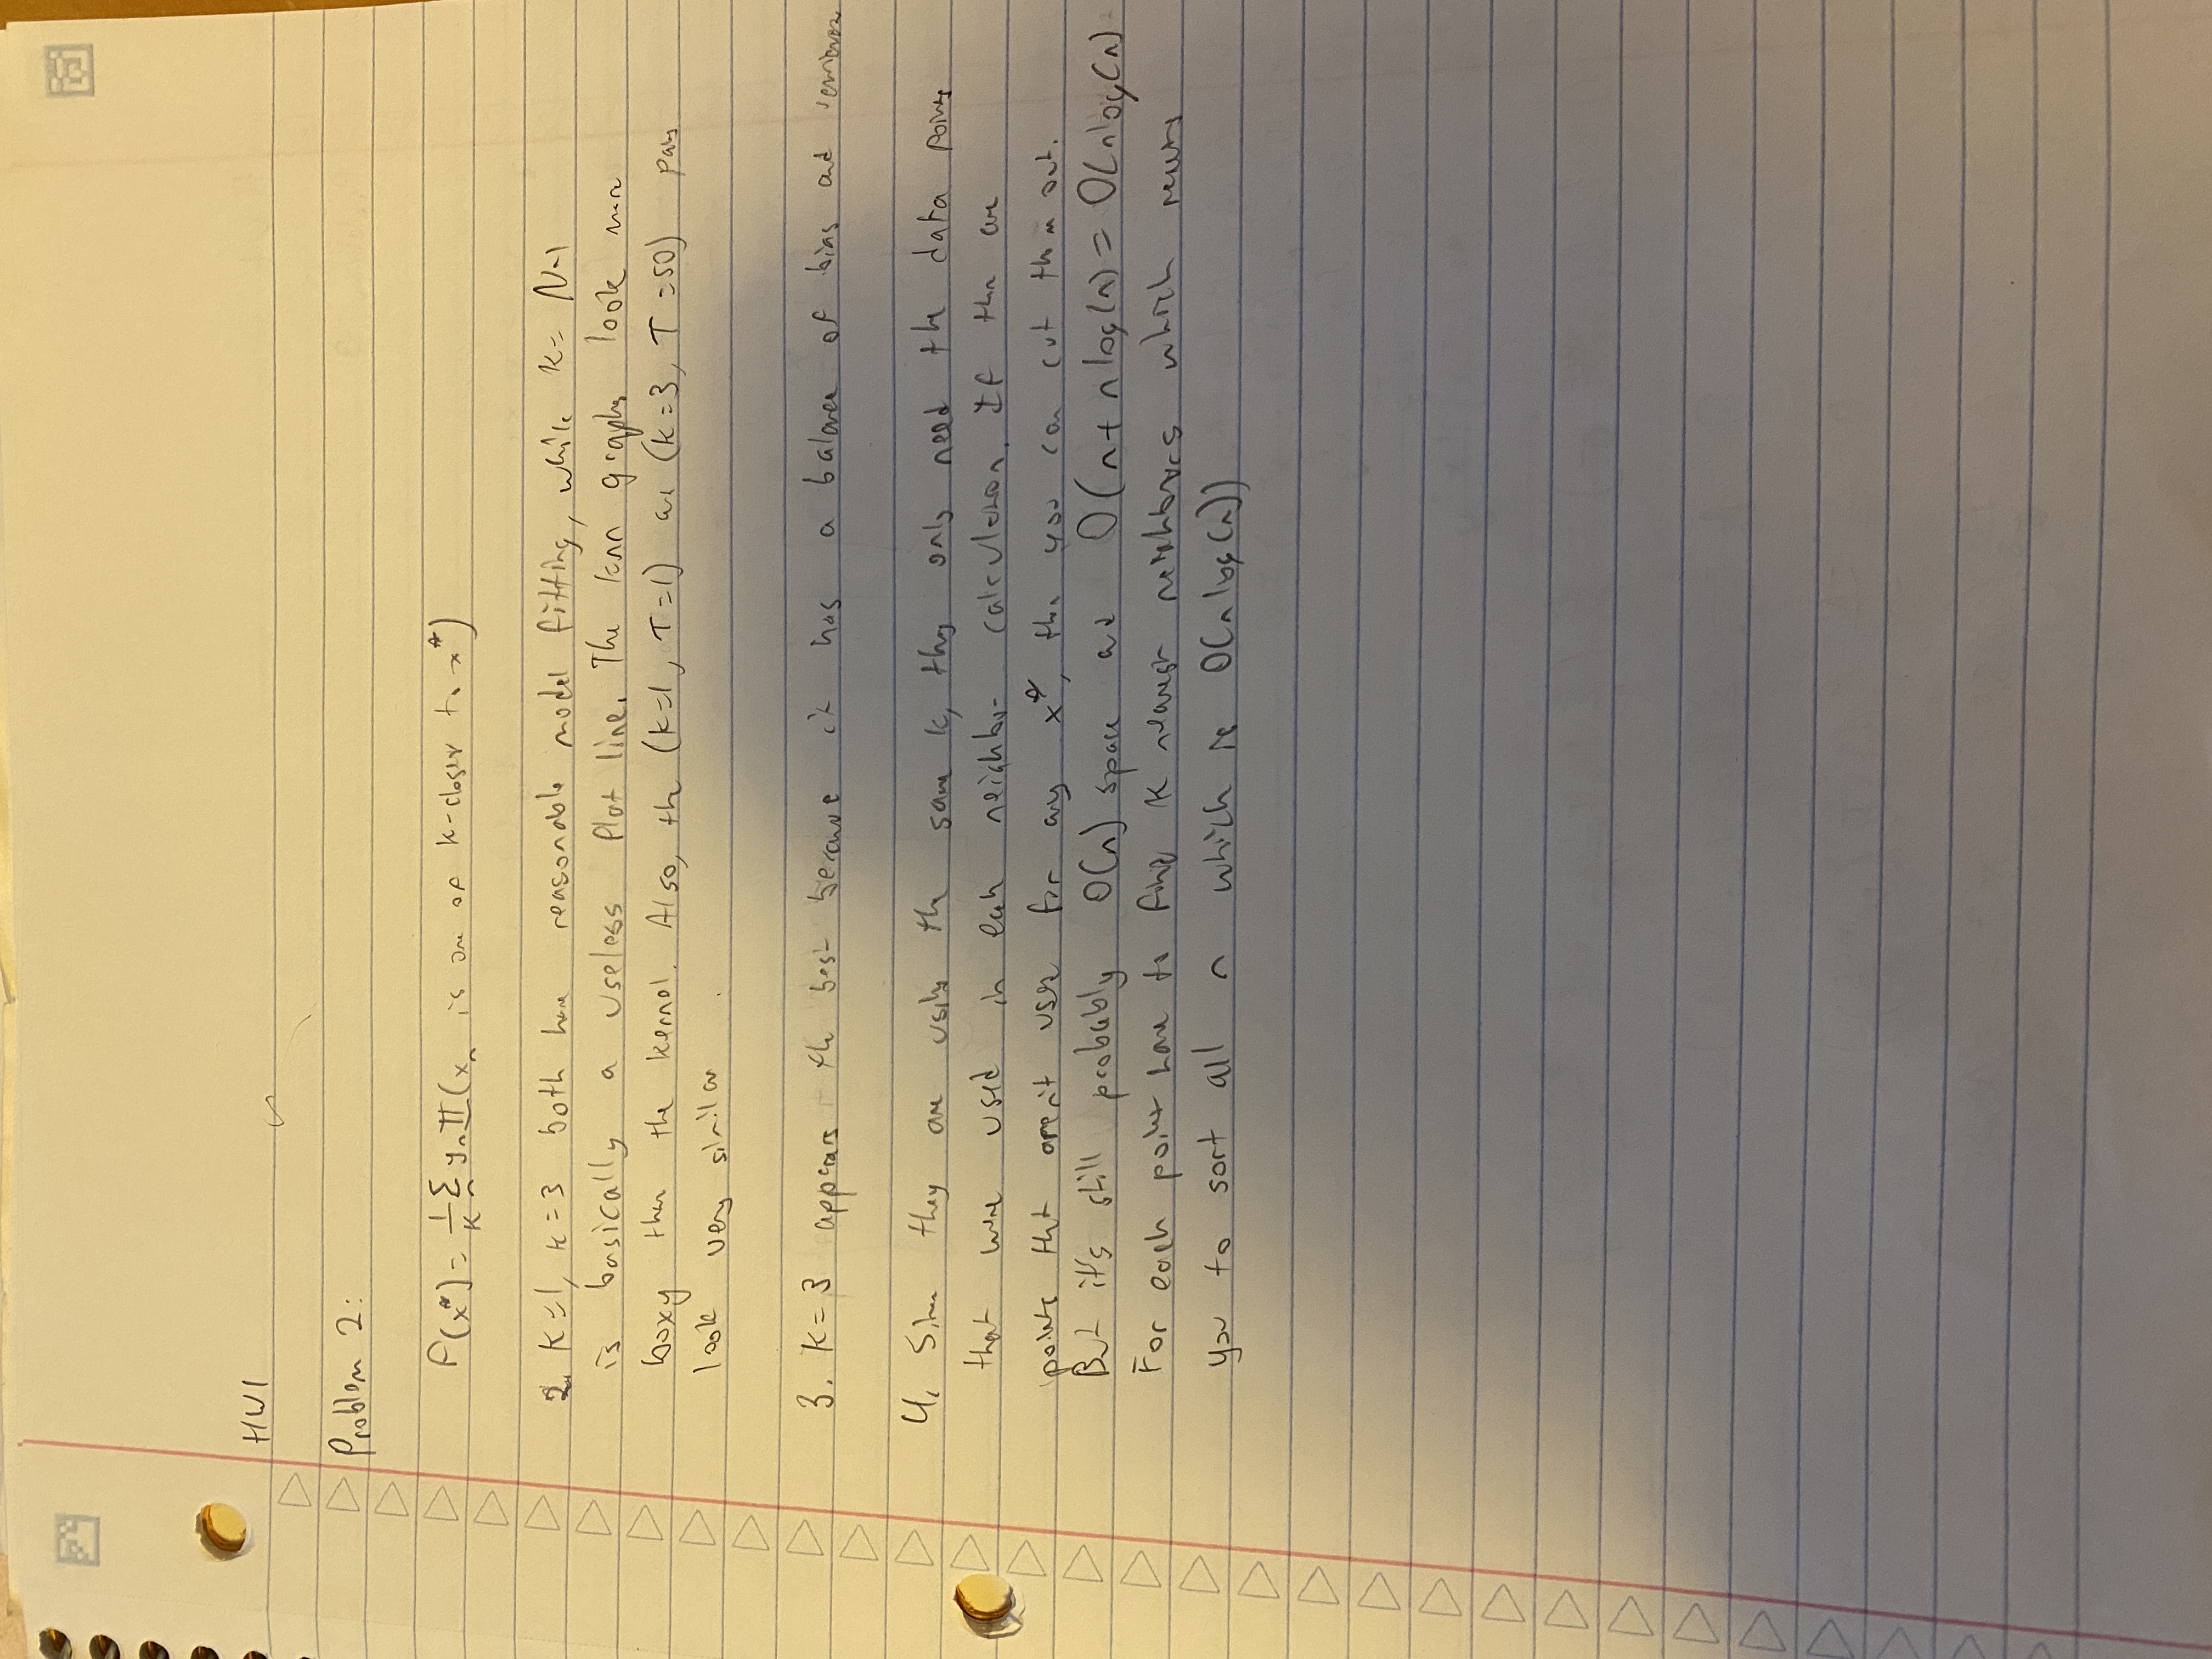 HW1
Problem 2:
f(x*) = 1/K Σn yn 𝕀(xn is one of k-closest to x*)
2. K=1, K=3 both have reasonable model fitting, while K= N-1
is basically a useless flat line. The knn graphs look more
boxy than the kernel. Also, the (k=1, T=1) and (k=3, T=50) pairs
look very similar
3. K=3 appears the best because it has a balance of bias and variance
4. Since they are using the same k, they only need the data points
that were used in each neighbor calculation. If there are
points that aren't used for any x*, then you can cut them out.
But it's still probably O(n) space and O(n + nlog(n) = O(nlog(n)
For each point have to find K nearest neighbors which
you to sort all n which is O(nlog(n))